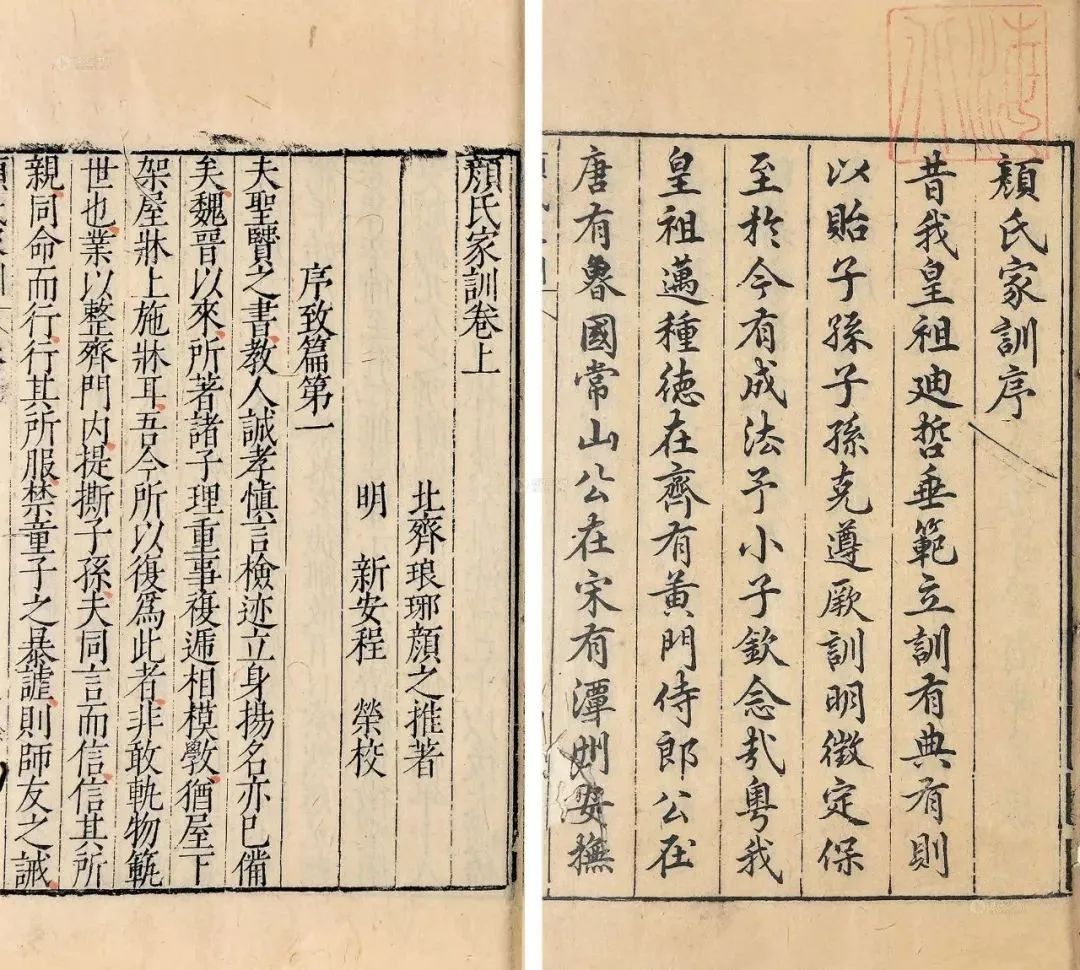 顏氏家訓序
昔我皇祖迪哲垂範立訓有典有則
以貽子孫子孫克遵厥訓明徵定保
至於今有成法予小子欽念哉粵我
皇祖邁種德在齊有黃門侍郎公在
唐有魯國常山公在宋有潭州安撫
顏氏家訓卷上
北齊琅琊顏之推著
明 新安程 榮校
序致篇第一
夫聖賢之書教人誠孝慎言檢迹立身揚名亦已備
矣魏晉以來所著諸子理重事複遞相模斆猶屋下
架屋牀上施牀耳吾今所以復為此者非敢軌物範
世也業以整齊門內提撕子孫夫同言而信信其所
親同命而行行其所服禁童子之暴謔則師友之誡